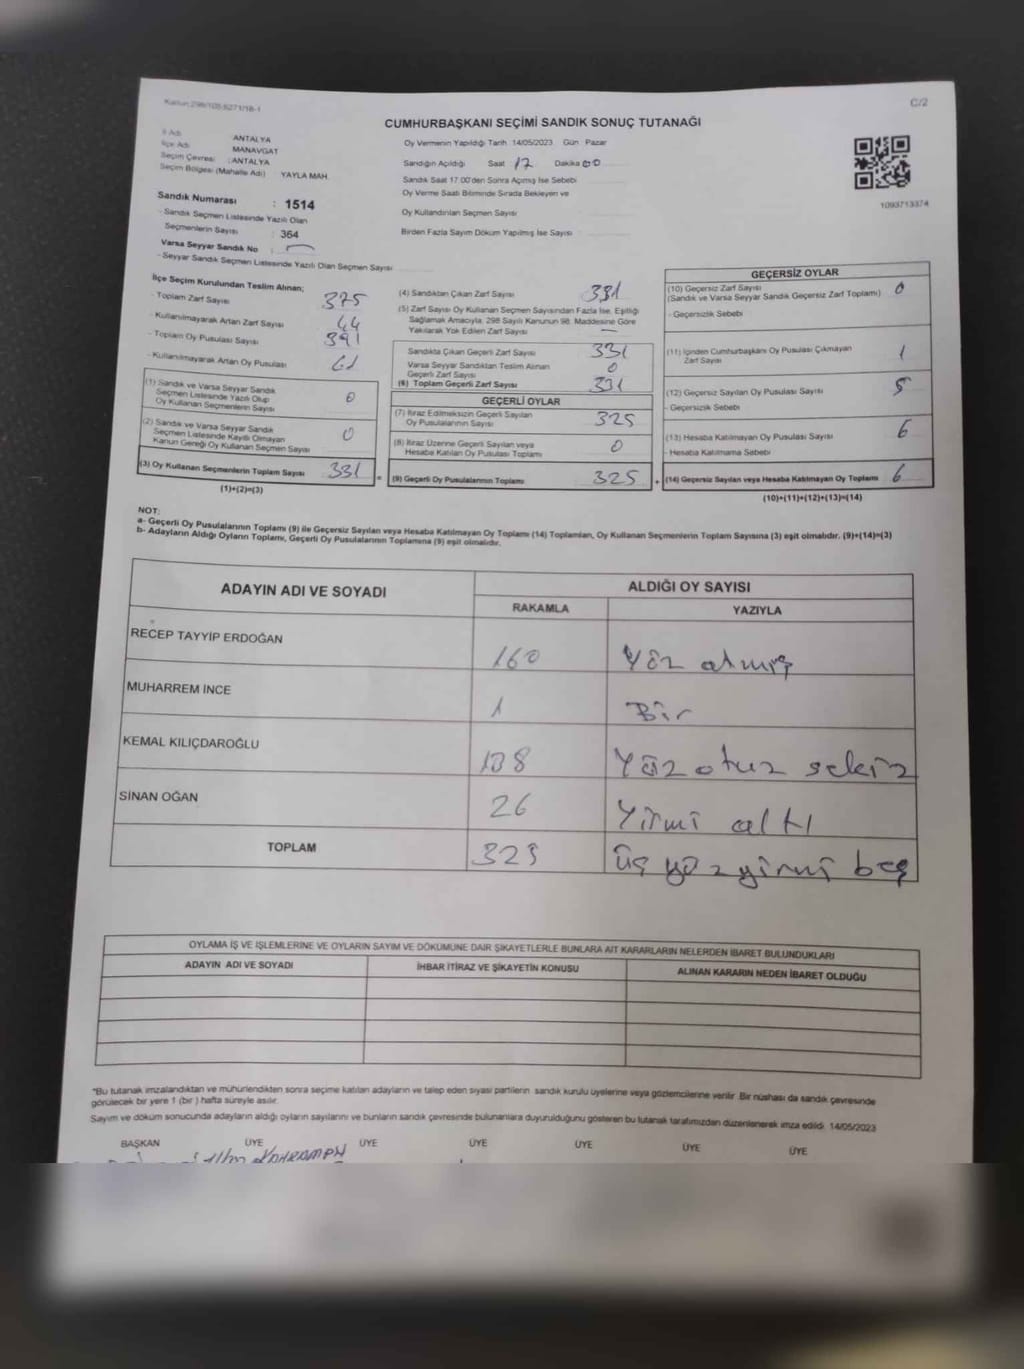 Kanun:298/105.6271/18-1
C/2
CUMHURBAŞKANI SEÇİMİ SANDIK SONUÇ TUTANAĞI
İl Adı ANTALYA
İlçe Adı MANAVGAT
Seçim Çevresi : ANTALYA
Seçim Bölgesi (Mahalle Adı) YAYLA MAH.
Sandık Numarası : 1514
- Sandık Seçmen Listesinde Yazılı Olan
Seçmenlerin Sayısı : 364
Varsa Seyyar Sandık No :
- Seyyar Sandık Seçmen Listesinde Yazılı Olan Seçmen Sayısı
Oy Vermenin Yapıldığı Tarih 14/05/2023 Gün Pazar
Sandığın Açıldığı Saat 17 Dakika 00
Sandık Saat 17.00'den Sonra Açmış İse Sebebi
Oy Verme Saati Bitiminde Sırada Bekleyen ve
Oy Kullandırılan Seçmen Sayısı
Birden Fazla Sayım Döküm Yapılmış İse Sayısı
1093713374
İlçe Seçim Kurulundan Teslim Alınan;
- Toplam Zarf Sayısı 375
- Kullanılmayarak Artan Zarf Sayısı 44
- Toplam Oy Pusulası Sayısı 391
- Kullanılmayarak Artan Oy Pusulası 61
(1) Sandık ve Varsa Seyyar Sandık
Seçmen Listesinde Yazılı Olup
Oy Kullanan Seçmenlerin Sayısı 0
(2) Sandık ve Varsa Seyyar Sandık
Seçmen Listesinde Kayıtlı Olmayan
Kanun Gereği Oy Kullanan Seçmen Sayısı 0
(3) Oy Kullanan Seçmenlerin Toplam Sayısı 331
(1)+(2)=(3)
(4) Sandıktan Çıkan Zarf Sayısı 331
(5) Zarf Sayısı Oy Kullanan Seçmen Sayısından Fazla İse, Eşitliği
Sağlamak Amacıyla, 298 Sayılı Kanunun 98. Maddesine Göre
Yakılarak Yok Edilen Zarf Sayısı —
Sandıkta Çıkan Geçerli Zarf Sayısı 331
Varsa Seyyar Sandıktan Teslim Alınan
Geçerli Zarf Sayısı 0
(6) Toplam Geçerli Zarf Sayısı 331
GEÇERLİ OYLAR
(7) İtiraz Edilmeksizin Geçerli Sayılan
Oy Pusulalarının Sayısı 325
(8) İtiraz Üzerine Geçerli Sayılan veya
Hesaba Katılan Oy Pusulası Toplamı 0
= (9) Geçerli Oy Pusulalarının Toplamı 325
GEÇERSİZ OYLAR
(10) Geçersiz Zarf Sayısı
(Sandık ve Varsa Seyyar Sandık Geçersiz Zarf Toplamı) 0
- Geçersizlik Sebebi
(11) İçinden Cumhurbaşkanı Oy Pusulası Çıkmayan
Zarf Sayısı 1
(12) Geçersiz Sayılan Oy Pusulası Sayısı 5
- Geçersizlik Sebebi
(13) Hesaba Katılmayan Oy Pusulası Sayısı 6
- Hesaba Katılmama Sebebi
+ (14) Geçersiz Sayılan veya Hesaba Katılmayan Oy Toplamı 6
(10)+(11)+(12)+(13)=(14)
NOT:
a- Geçerli Oy Pusulalarının Toplamı (9) ile Geçersiz Sayılan veya Hesaba Katılmayan Oy Toplamı (14) Toplamları, Oy Kullanan Seçmenlerin Toplam Sayısına (3) eşit olmalıdır. (9)+(14)=(3)
b- Adayların Aldığı Oyların Toplamı, Geçerli Oy Pusulalarının Toplamına (9) eşit olmalıdır.
ADAYIN ADI VE SOYADI ALDIĞI OY SAYISI
RAKAMLA YAZIYLA
RECEP TAYYİP ERDOĞAN 160 Yüz atmış
MUHARREM İNCE 1 Bir
KEMAL KILIÇDAROĞLU 138 Yüz otuz sekiz
SİNAN OĞAN 26 Yirmi altı
TOPLAM 325 üç yüz yirmi beş
OYLAMA İŞ VE İŞLEMLERİNE VE OYLARIN SAYIM VE DÖKÜMÜNE DAİR ŞİKAYETLERLE BUNLARA AİT KARARLARIN NELERDEN İBARET BULUNDUKLARI
ADAYIN ADI VE SOYADI İHBAR İTİRAZ VE ŞİKAYETİN KONUSU ALINAN KARARIN NEDEN İBARET OLDUĞU
*Bu tutanak imzalandıktan ve mühürlendikten sonra seçime katılan adayların ve talep eden siyasi partilerin sandık kurulu üyelerine veya gözlemcilerine verilir. Bir nüshası da sandık çevresinde
görülecek bir yere 1 (bir ) hafta süreyle asılır.
Sayım ve döküm sonucunda adayların aldığı oyların sayılarını ve bunların sandık çevresinde bulunanlara duyurulduğunu gösteren bu tutanak tarafımızdan düzenlenerek imza edildi. 14/05/2023
BAŞKAN ÜYE ÜYE ÜYE ÜYE ÜYE ÜYE
KAHRAMAN